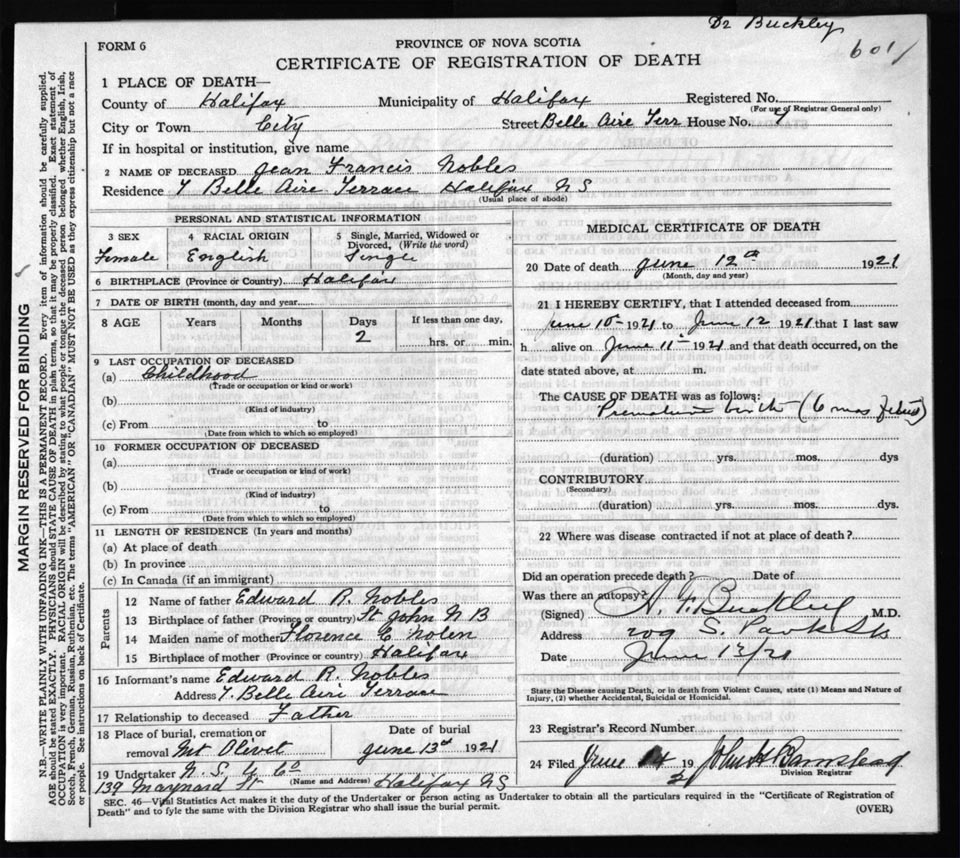 Dr Buckley
601
FORM 6
PROVINCE OF NOVA SCOTIA
CERTIFICATE OF REGISTRATION OF DEATH
1 PLACE OF DEATH—
County of Halifax Municipality of Halifax Registered No.
(For use of Registrar General only)
City or Town City Street Belle Aire Terr House No. 7
If in hospital or institution, give name
2 NAME OF DECEASED Jean Francis Nobles
Residence 7 Belle Aire Terrace Halifax NS
(Usual place of abode)
PERSONAL AND STATISTICAL INFORMATION
3 SEX 4 RACIAL ORIGIN 5 Single, Married, Widowed or Divorced, (Write the word)
Female English Single
6 BIRTHPLACE (Province or Country) Halifax
7 DATE OF BIRTH (month, day and year)
8 AGE Years Months Days If less than one day,
2 hrs. or min.
9 LAST OCCUPATION OF DECEASED
(a) Childhood
(Trade or occupation or kind or work)
(b)
(Kind of industry)
(c) From to
(Date from which to which so employed)
10 FORMER OCCUPATION OF DECEASED
(a)
(Trade or occupation or kind of work)
(b)
(Kind of industry)
(c) From to
(Date from which to which so employed)
11 LENGTH OF RESIDENCE (In years and months)
(a) At place of death
(b) In province
(c) In Canada (if an immigrant)
Parents
12 Name of father Edward R. Nobles
13 Birthplace of father (Province or country) St John N B
14 Maiden name of mother Florence C. Nolen
15 Birthplace of mother (Province or country) Halifax
16 Informant's name Edward R. Nobles
Address 7. Belle Aire Terrace
17 Relationship to deceased Father
18 Place of burial, cremation or Date of burial
removal Mt Olivet June 13th 1921
19 Undertaker N. S. U. Co
(Name and Address)
139 Maynard St Halifax NS
MEDICAL CERTIFICATE OF DEATH
20 Date of death June 12th 1921
(Month, day and year)
21 I HEREBY CERTIFY, that I attended deceased from
June 10th 1921 to June 12 1921 that I last saw
h alive on June 11th 1921 and that death occurred, on the
date stated above, at m.
The CAUSE OF DEATH was as follows:
Premature birth (6 mos fetus)
(duration) yrs. mos. dys
CONTRIBUTORY
(Secondary)
(duration) yrs. mos. dys.
22 Where was disease contracted if not at place of death?
Did an operation precede death? Date of
Was there an autopsy?
(Signed) A. F. Buckley M.D.
Address 209 S. Park St
Date June 12/21
State the Disease causing Death, or in death from Violent Causes, state (1) Means and Nature of
Injury, (2) whether Accidental, Suicidal or Homicidal.
23 Registrar's Record Number
24 Filed June 14 19 2
Division Registrar
SEC. 46—Vital Statistics Act makes it the duty of the Undertaker or person acting as Undertaker to obtain all the particulars required in the "Certificate of Registration of
Death" and to fyle the same with the Division Registrar who shall issue the burial permit. (OVER)
MARGIN RESERVED FOR BINDING
N.B.—WRITE PLAINLY WITH UNFADING INK—THIS IS A PERMANENT RECORD. Every item of information should be carefully supplied.
AGE should be stated EXACTLY. PHYSICIANS should STATE CAUSE OF DEATH in plain terms, so that it may be properly classified. Exact statement of
OCCUPATION is very important. RACIAL ORIGIN will be described by stating to what people or tongue the deceased person belonged whether English, Irish,
Scotch, French, German, Russian, Ruthenian, etc. The terms "AMERICAN" OR "CANADIAN" MUST NOT BE USED as they express citizenship but not a race
or people. See instructions on back of Certificate.